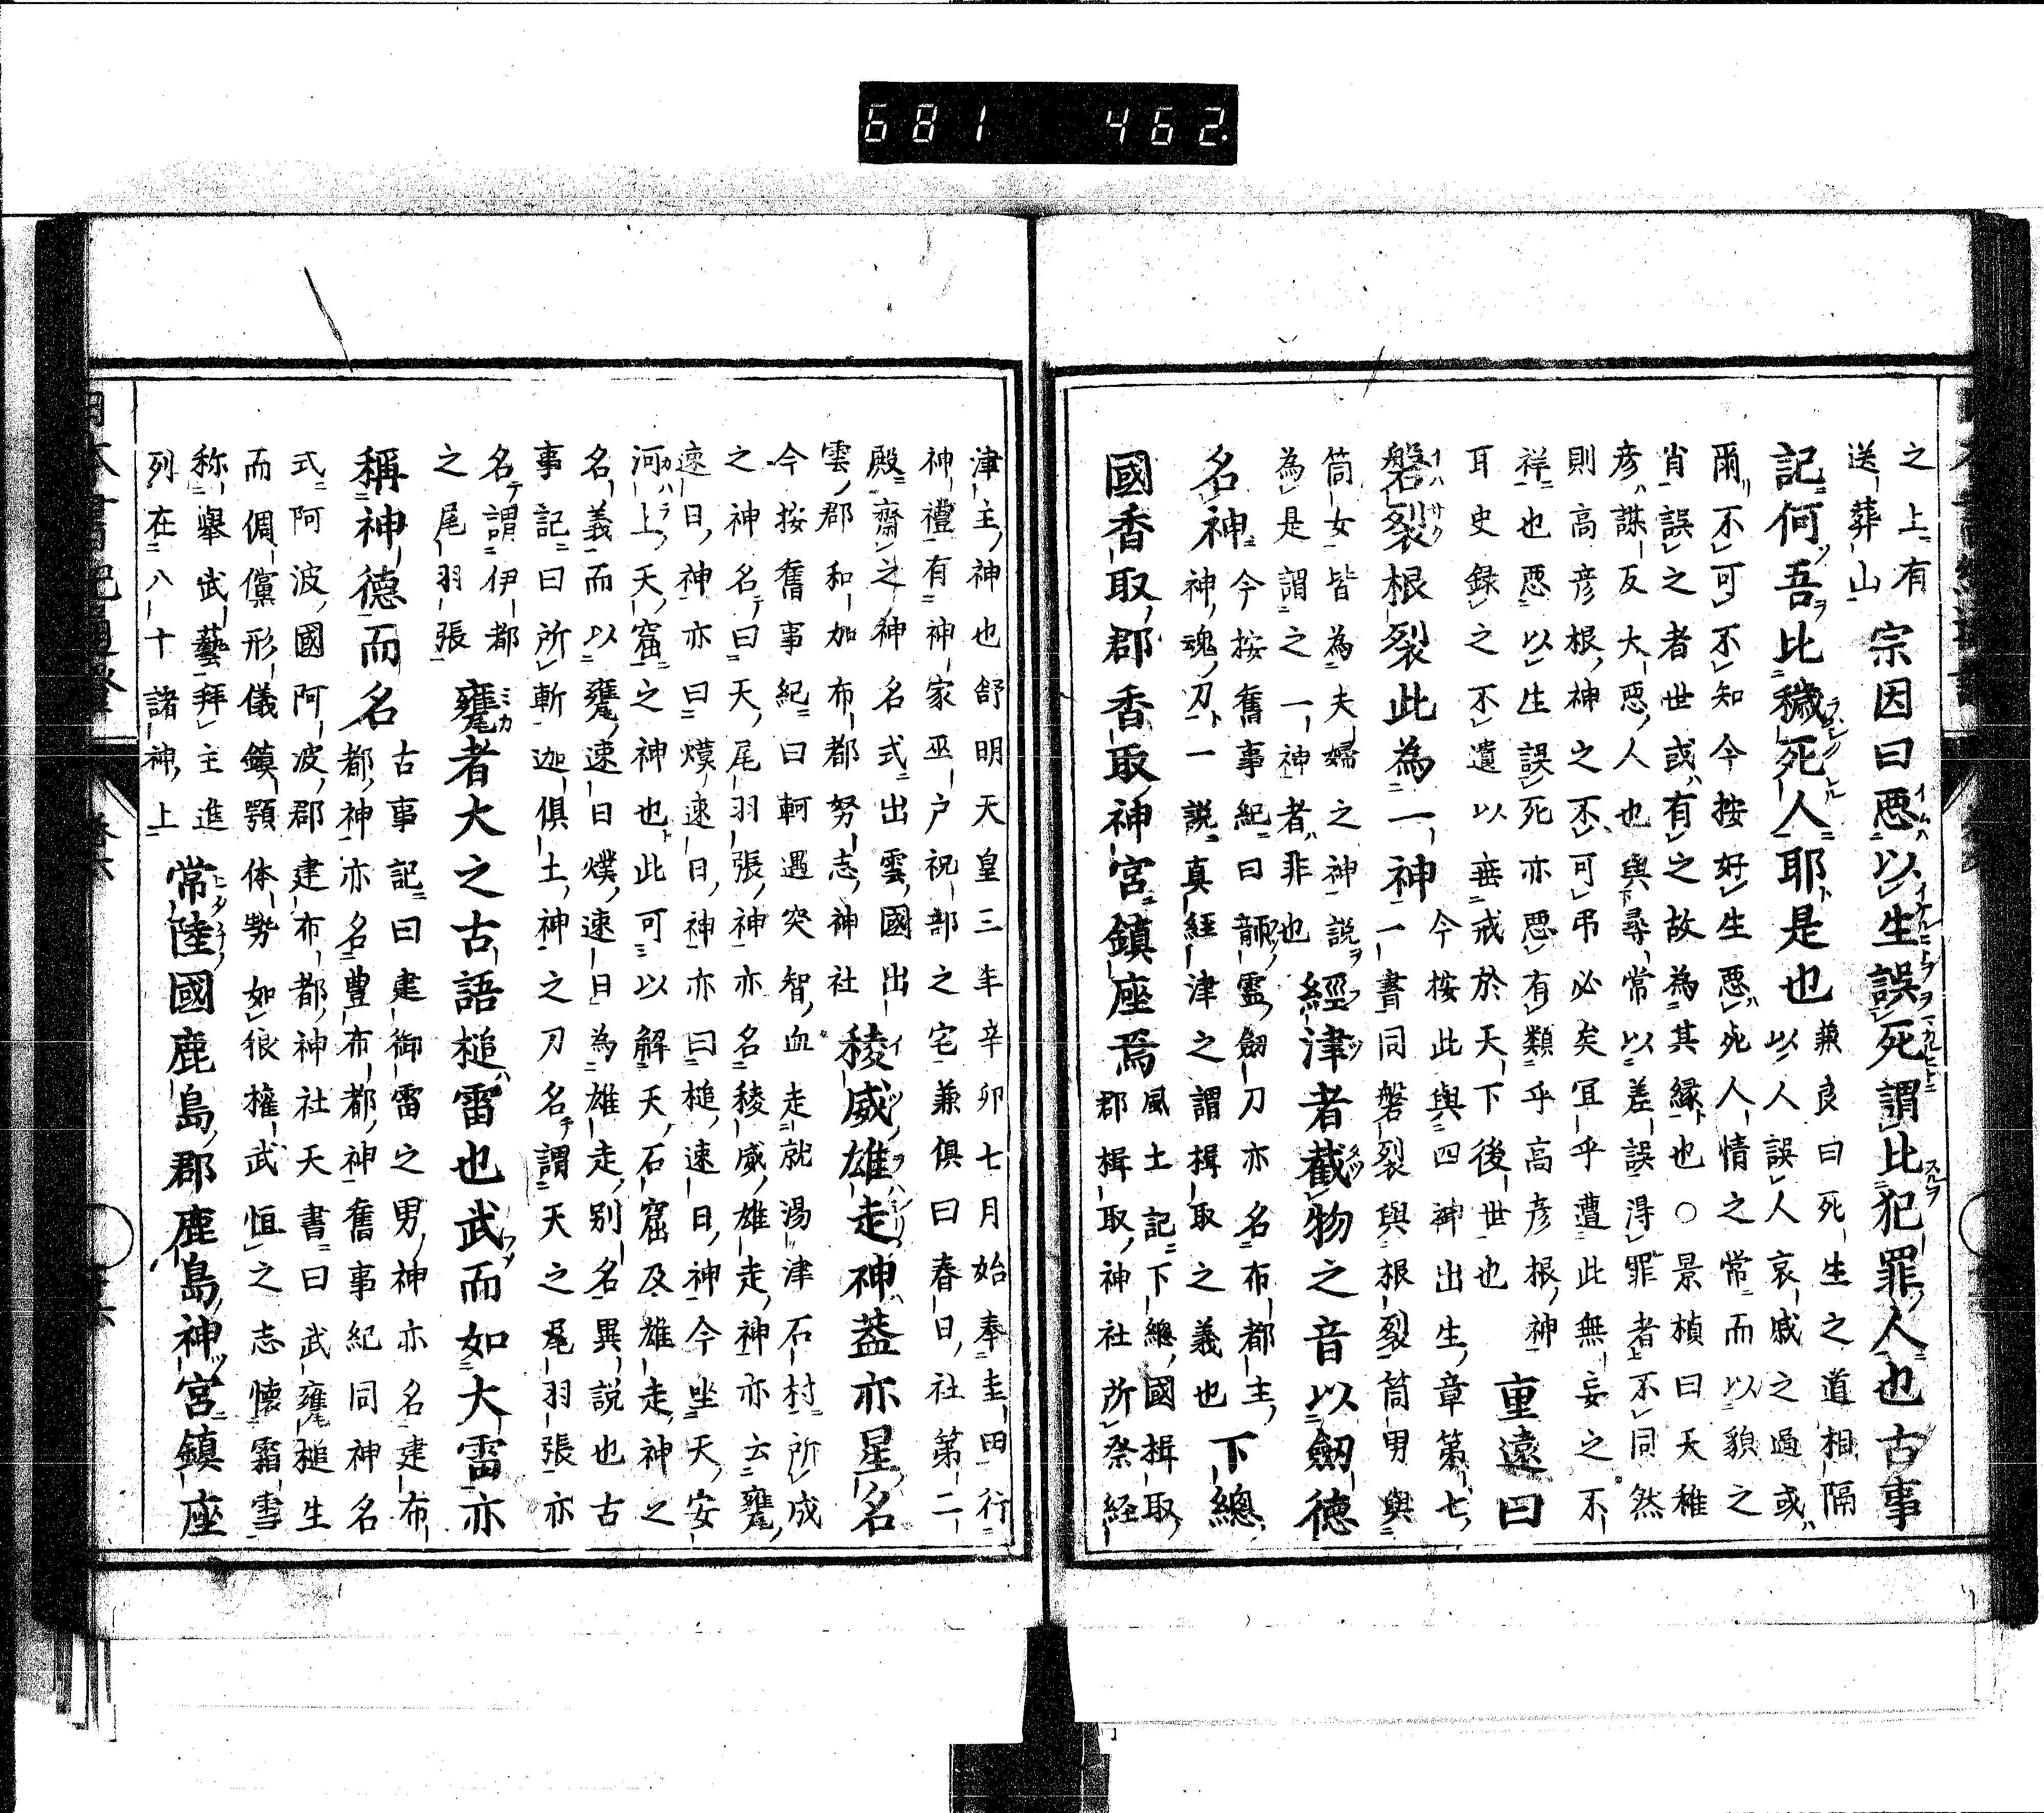 681 462
之上有
送葬山
宗因曰惡以生誤死謂比犯罪人也古事
兼良曰死生之道相隔
記何吾比穢死人耶是也
以人誤人哀戚之過或
爾不可不知今按好生惡死人情之常而以貌之
肖誤之者世或有之故為其縁也○景楨曰天稚
彦謀反大惡人也與尋常以差誤得罪者不同然
則高彦根神之不可弔必矣冝乎遭此無妄之不
祥也惡以生誤死亦惡有類乎高彦根神
耳史録之不遺以垂戒於天下後世也
重遠曰
磐裂根裂此為一神
今按此與四神出生章第七
一書同磐裂與根裂筒男與
筒女皆為夫婦之神說
為是謂之一神者非也
經津者截物之音以劔德
名神
今按舊事紀曰韴靈劔刀亦名布都主
神魂刀一說真經津之謂楫取之義也
下總
國香取郡香取神宮鎮座焉
風土記下總國楫取
郡楫取神社所祭經
津主神也舒明天皇三年辛卯七月始奉圭田行
神禮有神家巫戸祝部之宅兼俱曰春日社第二
殿齋之神名式出雲國出
雲郡和加布都努志神社
稜威雄走神葢亦星名
今按舊事紀曰軻遇突智血走就湯津石村所成
之神名曰天尾羽張神亦名稜威雄走神亦云甕
速日神亦曰熯速日神亦曰槌速日神今坐天安
河上天窟之神也此可以解天石窟及雄走神之
名義而以甕速日熯速日為雄走別名異說也古
事記曰所斬迦俱土神之刀名謂天之尾羽張亦
名謂伊都
之尾羽張
甕者大之古語槌雷也武而如大雷亦
稱神德而名
古事記曰建御雷之男神亦名建布
都神亦名豊布都神舊事紀同神名
式阿波國阿波郡建布都神社天書曰武甕槌生
而倜儻形儀鎮顎体勢如狼㩲武恒之志懷霜雪
称舉武藝拜主進
列在八十諸神上
常陸國鹿島郡鹿島神宮鎮座